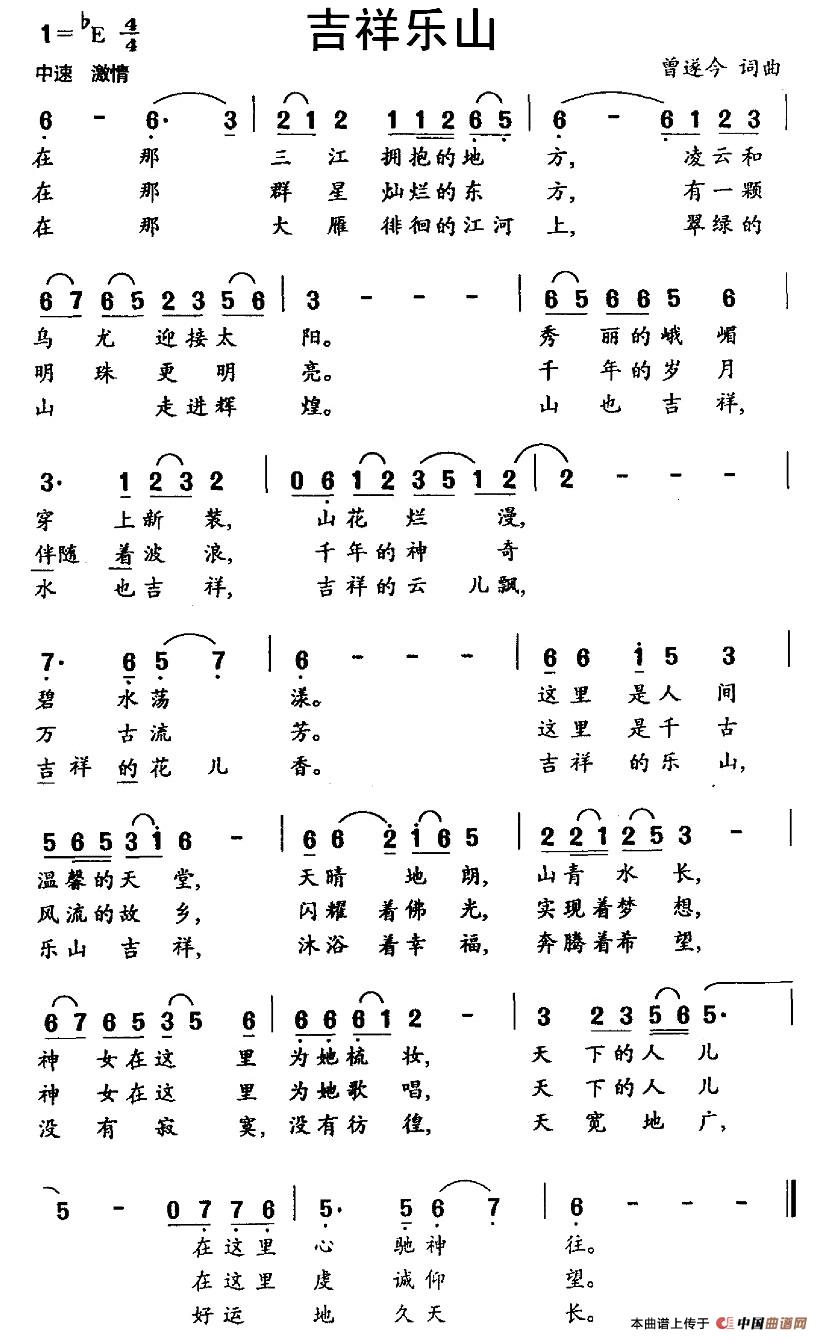 吉祥乐山
1=♭E 4/4
中速 激情
曾遂今 词曲
6 - 6· 3 | 2 1 2 1 1 2 6 5 | 6 - 6 1 2 3 |
在 那 三 江 拥抱的地 方, 凌云和
在 那 群 星 灿烂的东 方, 有一颗
在 那 大 雁 徘徊的江河 上, 翠绿的
6 7 6 5 2 3 5 6 | 3 - - - | 6 5 6 6 5 6 |
乌 尤 迎接太 阳。 秀 丽的峨嵋
明 珠 更 明 亮。 千 年的岁月
山 走进辉 煌。 山 也 吉 祥,
3· 1 2 3 2 | 0 6 1 2 3 5 1 2 | 2 - - - |
穿 上新 装, 山花 烂 漫,
伴随 着波 浪, 千年的神 奇
水 也吉 祥, 吉祥的云 儿飘,
7· 6 5 7 | 6 - - - | 6 6 i 5 3 |
碧 水荡 漾。 这里 是人 间
万 古流 芳。 这里 是千 古
吉祥 的花 儿 香。 吉祥 的乐 山,
5 6 5 3 i 6 - | 6 6 2 i 6 5 | 2 2 1 2 5 3 - |
温馨的天 堂, 天晴 地 朗, 山青 水 长,
风流的故 乡, 闪耀 着佛 光, 实现着梦 想,
乐山 吉 祥, 沐浴 着幸 福, 奔腾着希 望,
6 7 6 5 3 5 6 | 6 6 6 1 2 - | 3 2 3 5 6 5· |
神 女在这 里 为她梳 妆, 天 下的人 儿
神 女在这 里 为她歌 唱, 天 下的人 儿
没 有 寂 寞, 没有彷 徨, 天 宽 地 广,
5 - 0 7 7 6 | 5· 5 6 7 | 6 - - - ‖
在这里 心 驰神 往。
在这里 虔 诚仰 望。
好运 地 久天 长。
本曲谱上传于 中国曲谱网